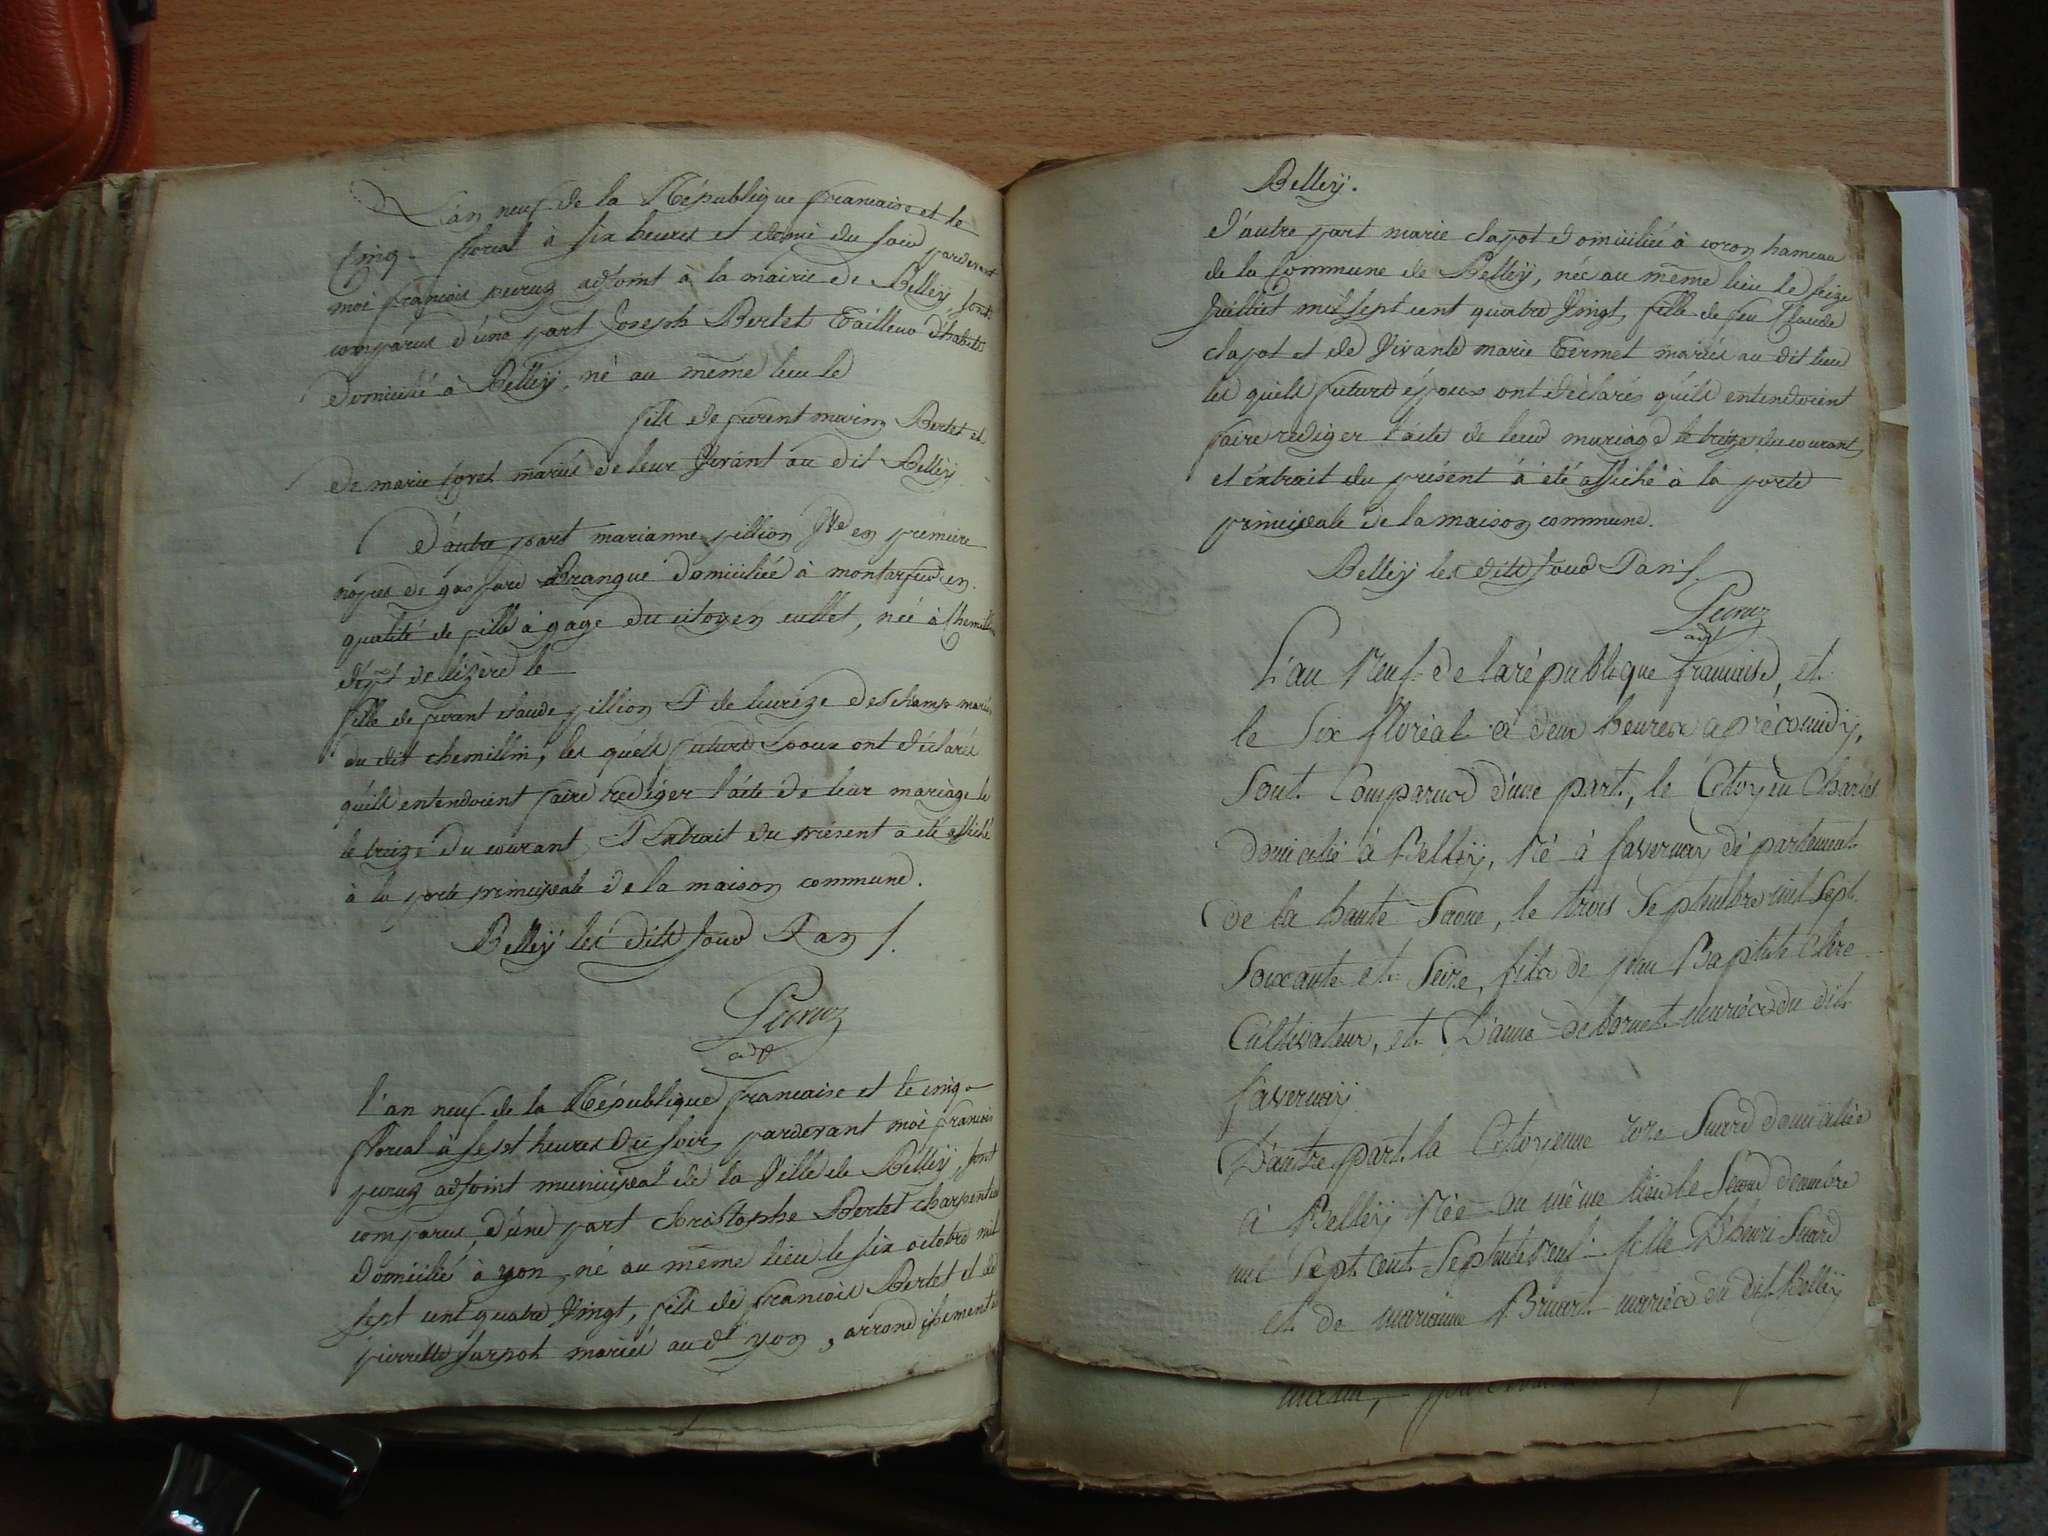 L'an neuf de la République francaise et le
cinq floreal à six heures et demie du soir pardevant
moi françois peruz adjoint à la mairie de Belleÿ, sont
comparus d'une part Joseph Bertet Tailleur d'habits
domicilié à Belleÿ, né au même lieu le
fils de furent Berlet et
de marie mariés de leur vivant au dit Belleÿ
d'autre part marianne pillion vve en premiere
nopces de gaspard domiciliée à en
qualité de fille à gage du citoyen cullet, née à
dépt de lizère le
fille de furent claude pillion & de Deschamps mariés
du dit chemillin, les quels futurs Epoux ont déclarés
qu'ils entendoient faire rediger l'acte de leur mariage le
le treize du courant, & Extrait du présent a été affiché
à la porte principale de la maison commune.
Belleÿ les dits jour & an /.
Peruz
adt
l'an neuf de la République francaise et le cinq
floreal à sept heures du soir, pardevant moi francois
peruz adjoint municipal de la Ville de Belleÿ, sont
comparus, d'une part Christophe Bertet charpentier
domicilié à yon, né au même lieu le six octobre mil
sept cent quatre vingt, fils de francois Bertet et de
pierrette mariés au dt yon, arrondissement de
Belleÿ.
d'autre part marie clapot domiciliée à coron hameau
de la commune de Belleÿ, née au même lieu le seize
juilliet mil sept cent quatre vingt, fille de feu Claude
clapot et de vivante marie Termet mariés au dit lieu
les quels futurs époux ont déclarés qu'ils entendoient
faire rediger l'acte de leur mariage le treize du courant,
et extrait du présent à été affiché à la porte
principale de la maison commune.
Belleÿ les dits jour & an /.
Peruz
adt
L'an Neuf de la république francaise, et
le Six floréal à deux heures après midÿ,
Sont Comparus d'une part, le Citoyen Charles
domicilié à Belleÿ, Né à favernaÿ département
de la haute Saone, le trois Septembre mil Sept
Soixante et Seize, fils de jean Baptiste
Cultivateur, et D'anne mariés du dit
favernaÿ
D'autre part la Citoyenne rose Suard domiciliée
à Belleÿ Née au même lieu le
mil Sept cent Septente neuf fille D'henri Suard
et de marianne Brunet mariés du dit Belleÿ